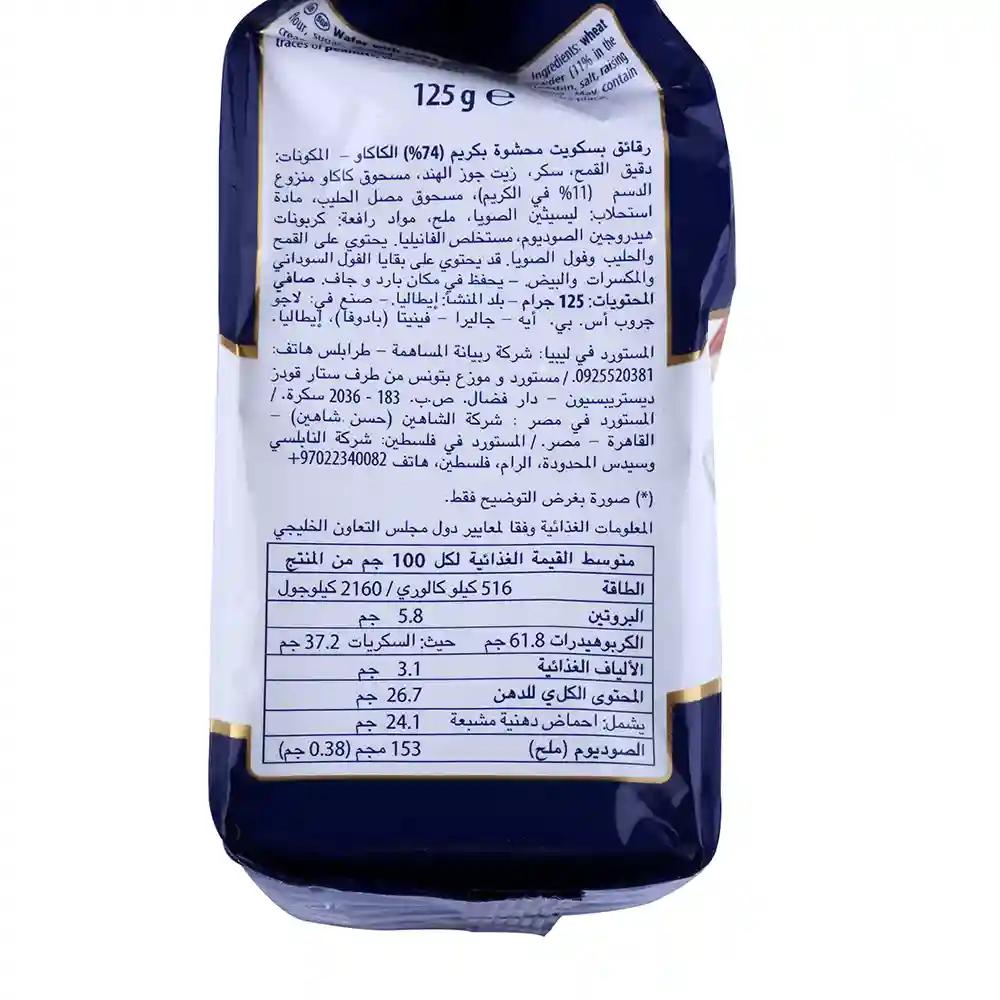 Wafer with
flour, sugar
traces of peanuts
Ingredients: wheat
(11% in the
salt, raising
May contain
125 g ℮
رقائق بسكويت محشوة بكريم (74%) الكاكاو – المكونات:
دقيق القمح، سكر، زيت جوز الهند، مسحوق كاكاو منزوع
الدسم (11% في الكريم)، مسحوق مصل الحليب، مادة
استحلاب: ليسيثين الصويا، ملح، مواد رافعة: كربونات
هيدروجين الصوديوم، مستخلص الفانيليا. يحتوي على القمح
والحليب وفول الصويا. قد يحتوي على بقايا الفول السوداني
والمكسرات والبيض. – يحفظ في مكان بارد و جاف. صافي
المحتويات: 125 جرام – بلد المنشأ: إيطاليا. – صنع في: لاجو
جروب أس. بي. أيه – جاليرا – فينيتا (بادوفا)، إيطاليا.
المستورد في ليبيا: شركة ريبانة المساهمة – طرابلس هاتف:
0925520381. / مستورد و موزع بتونس من طرف ستار قودز
ديستريبسيون – دار فضال. ص.ب. 183 - 2036 سكرة. /
المستورد في مصر : شركة الشاهين (حسن شاهين) –
القاهرة – مصر. / المستورد في فلسطين: شركة النابلسي
وسيدس المحدودة، الرام، فلسطين، هاتف 97022340082+
(*) صورة بغرض التوضيح فقط.
المعلومات الغذائية وفقا لمعايير دول مجلس التعاون الخليجي
متوسط القيمة الغذائية لكل 100 جم من المنتج
الطاقة 516 كيلو كالوري / 2160 كيلوجول
البروتين 5.8 جم
الكربوهيدرات 61.8 جم حيث: السكريات 37.2 جم
الألياف الغذائية 3.1 جم
المحتوى الكلي للدهن 26.7 جم
يشمل: احماض دهنية مشبعة 24.1 جم
الصوديوم (ملح) 153 مجم (0.38 جم)